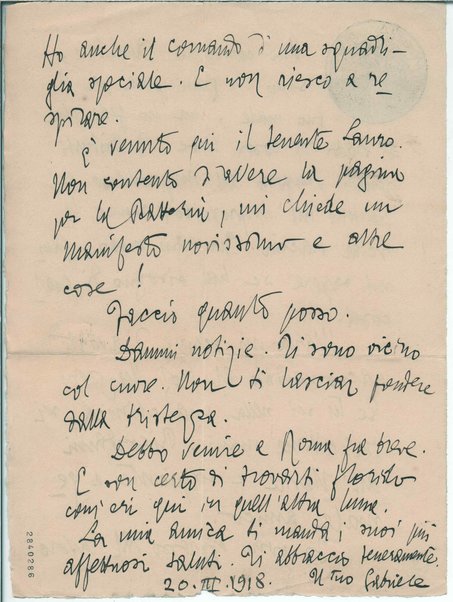 Ho anche il comando d'una squadri-
glia speciale. E non riesco a re-
spirare.
È venuto qui il tenente Lauro.
Non contento d'avere la pagina
per la Batteria, mi chiede un
manifesto novissimo e altre
cose!
Faccio quanto posso.
Dammi notizie. Ti sono vicino
col cuore. Non ti lasciar prendere
dalla tristezza.
Debbo venire a Roma fra breve.
E son certo di trovarti florido
com'eri qui in quell'altra luna.
La mia amica ti manda i suoi più
affettuosi saluti. Ti abbraccio teneramente.
20.III.1918. Il tuo Gabriele
2840286